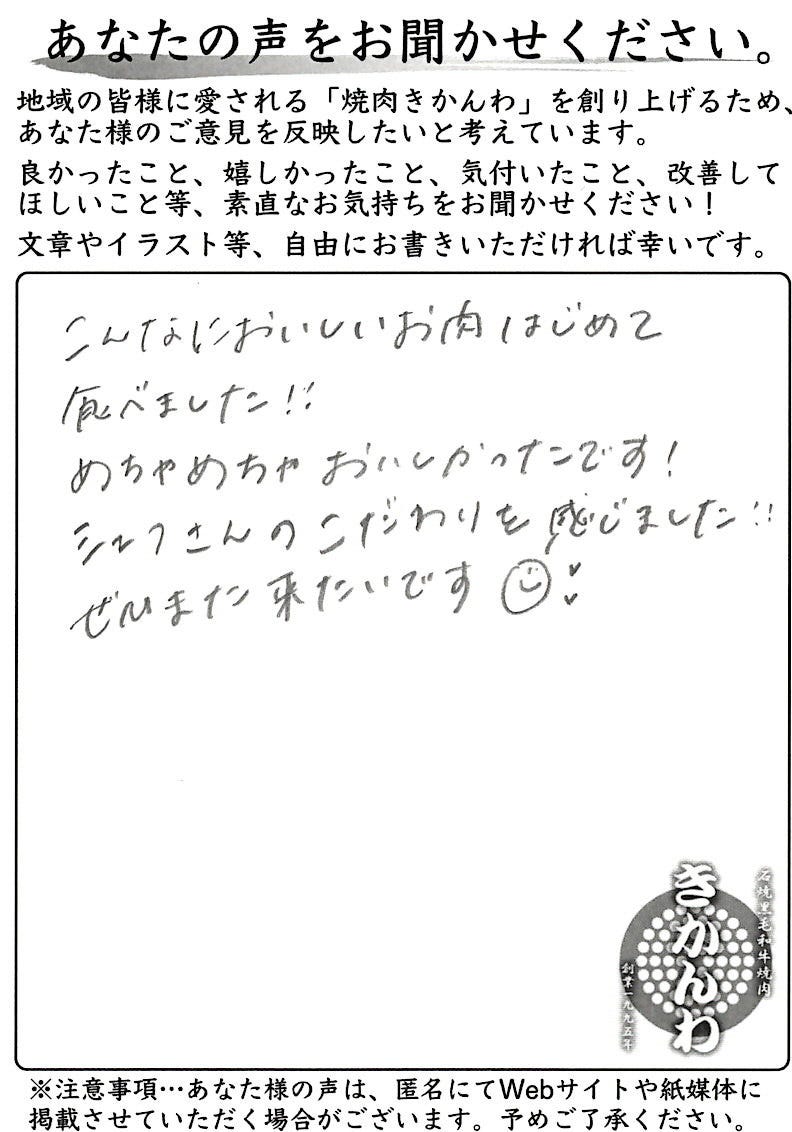 あなたの声をお聞かせください。
地域の皆様に愛される「焼肉きかんわ」を創り上げるため、
あなた様のご意見を反映したいと考えています。
良かったこと、嬉しかったこと、気付いたこと、改善して
ほしいこと等、素直なお気持ちをお聞かせください！
文章やイラスト等、自由にお書きいただければ幸いです。
こんなにおいしいお肉はじめて
食べました!!
めちゃめちゃおいしかったです!
シェフさんのこだわりを感じました!!
ぜひまた来たいです
石焼黒毛和牛焼肉
きかんわ
創業一九九五年
※注意事項…あなた様の声は、匿名にてWebサイトや紙媒体に
掲載させていただく場合がございます。予めご了承ください。